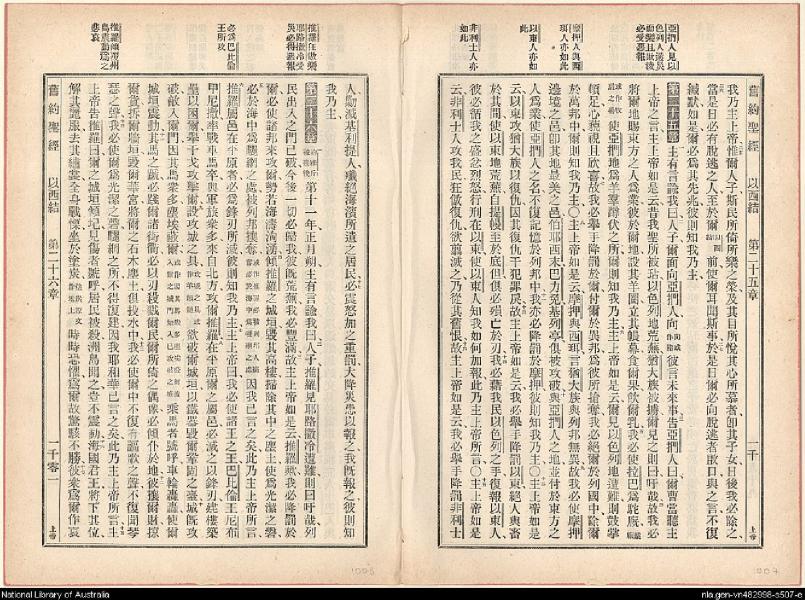 舊約聖經 以西結 第二十五章 一千
亞捫人見以
色列人遭災
必受惡報
摩押人與西
珥人亦如此
以東人亦如
此
非利士人亦
如此
我乃主上帝惟人子斯民所倚所樂之榮及其目所悅其心所慕者卽其子女日後我必除之
當是日必有脫逃之人至於爾前使爾耳聞斯事於是日爾必向脫逃者啟口與之言不復
緘默如是爾必爲其先兆彼則知我乃主
第二十五章 主有言諭我曰人子爾面向亞捫人向彼言未來事告亞捫人曰爾曹當聽主
上帝之言主上帝如是云昔我聖所被玷以色列地荒蕪猶大族被擄爾見之則曰吁哉故我必
將爾地賜東方之人爲業彼於爾地設其羊圈立其帳幕食爾果飲爾乳我必使拉巴爲駝廐
使亞捫地爲羊羣蹲伏之所爾則知我乃主主上帝如是云爾見以色列地遭難則鼓掌
頓足心藐視且欣喜故我必舉手降罰於爾付爾於異邦爲彼所搶奪我必絕爾於列國中除爾
於萬邦中爾則知我乃主○主上帝如是云摩押與西珥言猶大族與列邦無異故我必使摩押
邊境之邑卽其地最美之邑伯耶西末巴力免基列亭俱被攻破與亞捫人之地並付於東方之
人爲業使亞捫人之名不復記憶於列邦中我亦必降罰於摩押彼則知我乃主○主上帝如是
云以東攻猶大族以復仇因其復仇干犯罪戾故主上帝如是云我必舉手降罰以東絕人與畜
於其間使以東地荒蕪自提幔至於底但俱必殞亡於刃我必藉我民以色列之手復報以東人
彼必循我之忿怒烈怒行刑在以東使以東人知我如何加報此乃主上帝所言○主上帝如是
云非利士人攻我民狂傲復仇欲翦滅之乃從其舊恨故主上帝如是云我必舉手降罰非利士
人勦滅基利提人殲絕海濱所遺之居民必震怒加之重罰大降災患以報之我旣報之彼則知
我乃主
第二十六章 第十一年正月朔主有言諭我曰人子推羅見耶路撒冷遭難則曰吁哉列
民出入之門已破今後一切必歸我彼旣荒蕪我必豐滿故主上帝如是云推羅歟我必降罰於
爾必使諸邦來攻爾勢若海濤洶湧傾推羅之城垣毀其高樓掃除其中之塵土使爲光潔之磐
必於海中爲曬網之處被列邦擄奪因我已言之矣此乃主上帝所言
推羅屬邑在平原者必爲鋒刃所滅彼則知我乃主主上帝曰我必使諸王之王巴比倫王尼布
甲尼撒率戰車馬卒與軍旅衆多來自北方攻推羅在平原爾之屬邑必滅之以鋒刃建樓築
壘以困爾舉干戈攻擊爾設攻城之具欲頹爾城垣以鐵器毀爾鞏固之臺城旣攻
破敵入爾門因其馬衆多塵埃蔽爾乘馬者號呼車輪轟轟使爾
城垣震動其馬之蹏必踐爾諸街衢必以刃殺戮爾民爾所倚之偶像必傾仆於地彼獲爾財掠
爾貨拆爾牆垣毀爾華宮將爾之石木塵土俱投水中我必使爾中不復有謳歌之聲不復聞琴
瑟之聲我必使爾爲光潔之磐曬網之所不得復建因我耶和華已言之矣此乃主上帝所言主
上帝告推羅曰爾之城垣傾圮見傷者號呼居民被殺洲島聞之豈不震動海國君王將下其位
解其寶服去其繡裳全身戰慄坐於塗炭時時恐懼爲爾故驚駭不勝彼衆爲爾作哀
推羅狂傲樂
耶路撒冷受
災必得惡報
必爲巴比倫
王所攻
推羅傾覆州
島震動爲之
悲哀
舊約聖經 以西結 第二十六章 一千零一
上帝
National Library of Australia
nla.gen-vn482998-s507-e